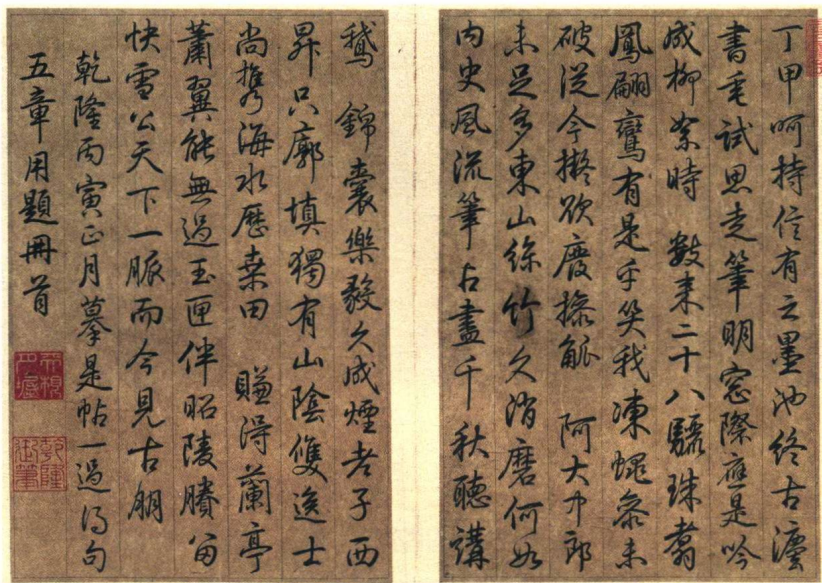 丁甲呵持信有之墨池終古
書垂試思走筆明窗際應是吟
成柳絮時 數來二十八驪珠翥
鳳翩鸞有是乎笑我凍蠅參未
破從今擬欲廢操觚 阿大中郎
未足多東山絲竹久消磨何如
內史風流筆占盡千秋聽講
鵝 錦囊樂毅久成煙老子西
昇只廓填獨有山陰雙逸士
尚攜海水歷桑田 賺得蘭亭
蕭翼能無過玉匣伴昭陵賸留
快雪公天下一脈而今見古朋
乾隆丙寅正月摹是帖一過得句
五章用題冊首
乾隆御筆